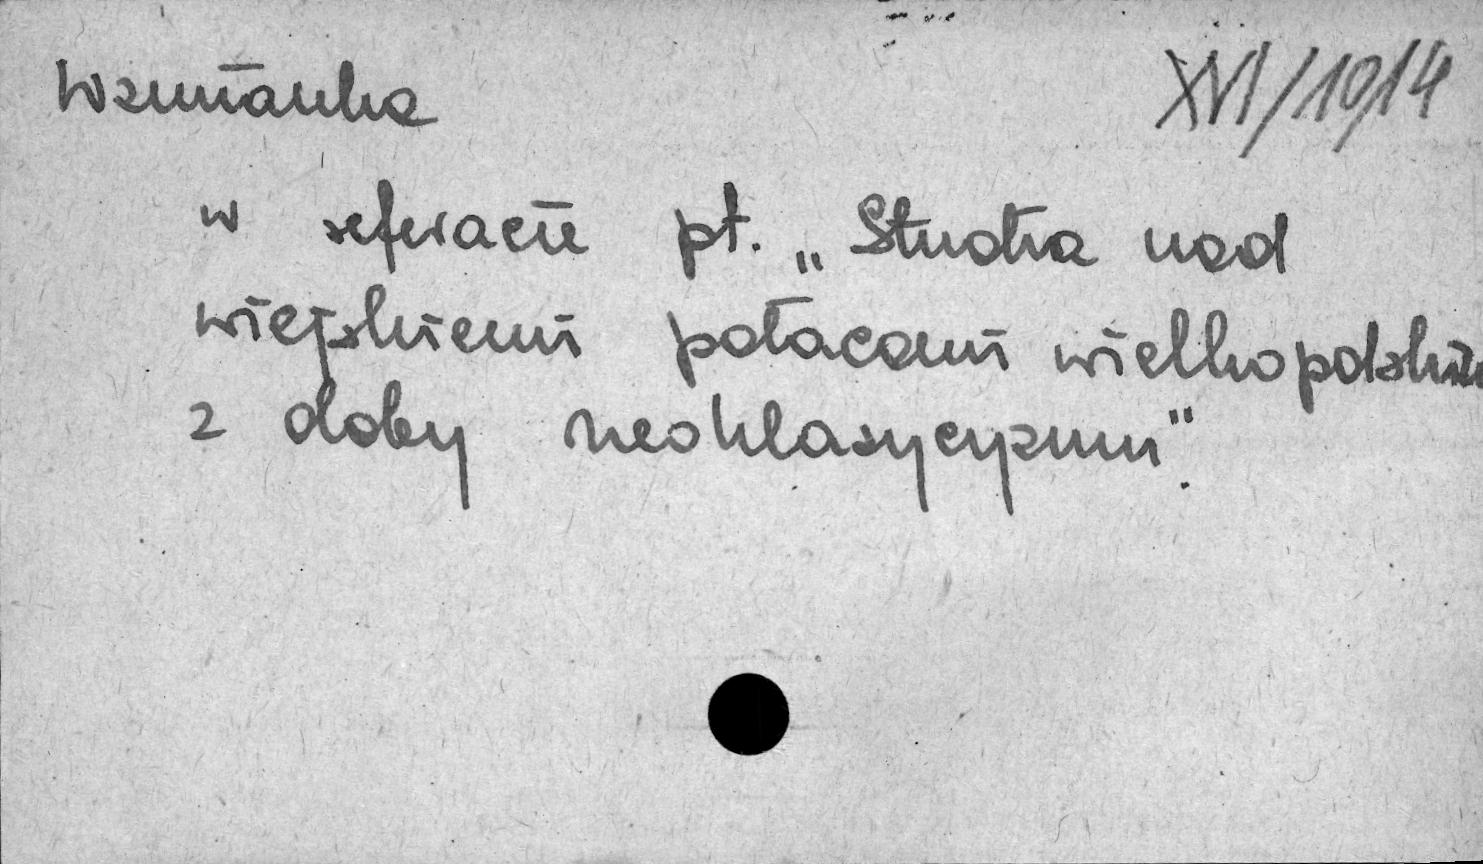 Wzmianka
XVI/1914
w referacie pt. „Studia nad
wiejskiemi pałacami wielkopolskiemi
z doby neoklasycyzmu".